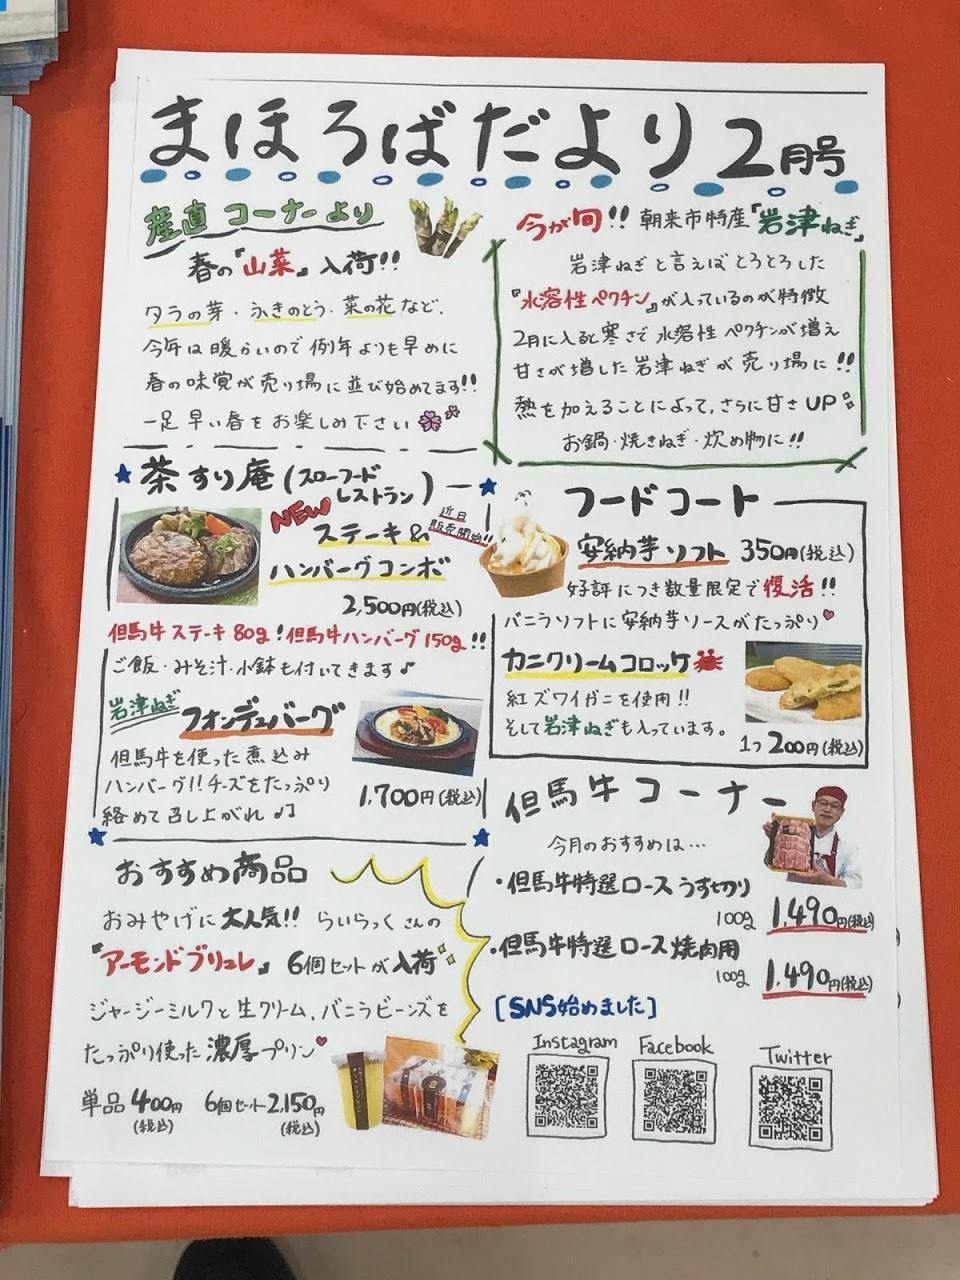 まほろばだより 2月号
産直コーナーより
春の『山菜』入荷!!
タラの芽・ふきのとう・菜の花など、
今年は暖かいので例年よりも早めに
春の味覚が売り場に並び始めてます!!
一足早い春をお楽しみ下さい
今が旬!! 朝来市特産『岩津ねぎ』
岩津ねぎと言えばとろとろした
『水溶性ペクチン』が入っているのが特徴
2月に入ると寒さで水溶性ペクチンが増え
甘さが増した岩津ねぎが売り場に!!
熱を加えることによって、さらに甘さUP
お鍋・焼きねぎ・炊め物に!!
茶すり庵(スローフード
レストラン)
NEW
ステーキ&
近日
販売開始!!
ハンバーグコンボ
2,500円(税込)
但馬牛ステーキ80g!但馬牛ハンバーグ150g!!
ご飯・みそ汁・小鉢も付いてきます♪
岩津ねぎ
フォンデュバーグ
但馬牛を使った煮込み
ハンバーグ!!チーズをたっぷり
絡めて召し上がれ♪♫
1,700円(税込)
フードコート
安納芋ソフト 350円(税込)
好評につき数量限定で復活!!
バニラソフトに安納芋ソースがたっぷり♥
カニクリームコロッケ
紅ズワイガニを使用!!
そして岩津ねぎも入っています。
1つ 200円(税込)
但馬牛コーナー
今月のおすすめは…
・但馬牛特選ロースうす切り
100g 1,490円(税込)
・但馬牛特選ロース焼肉用
100g 1,490円(税込)
おすすめ商品
おみやげに大人気!! らいらっくさんの
『アーモンドブリュレ』 6個セットが入荷
ジャージーミルクと生クリーム、バニラビーンズを
たっぷり使った濃厚プリン♥
単品400円
(税込)
6個セット2,150円
(税込)
[SNS始めました]
Instagram
Facebook
Twitter